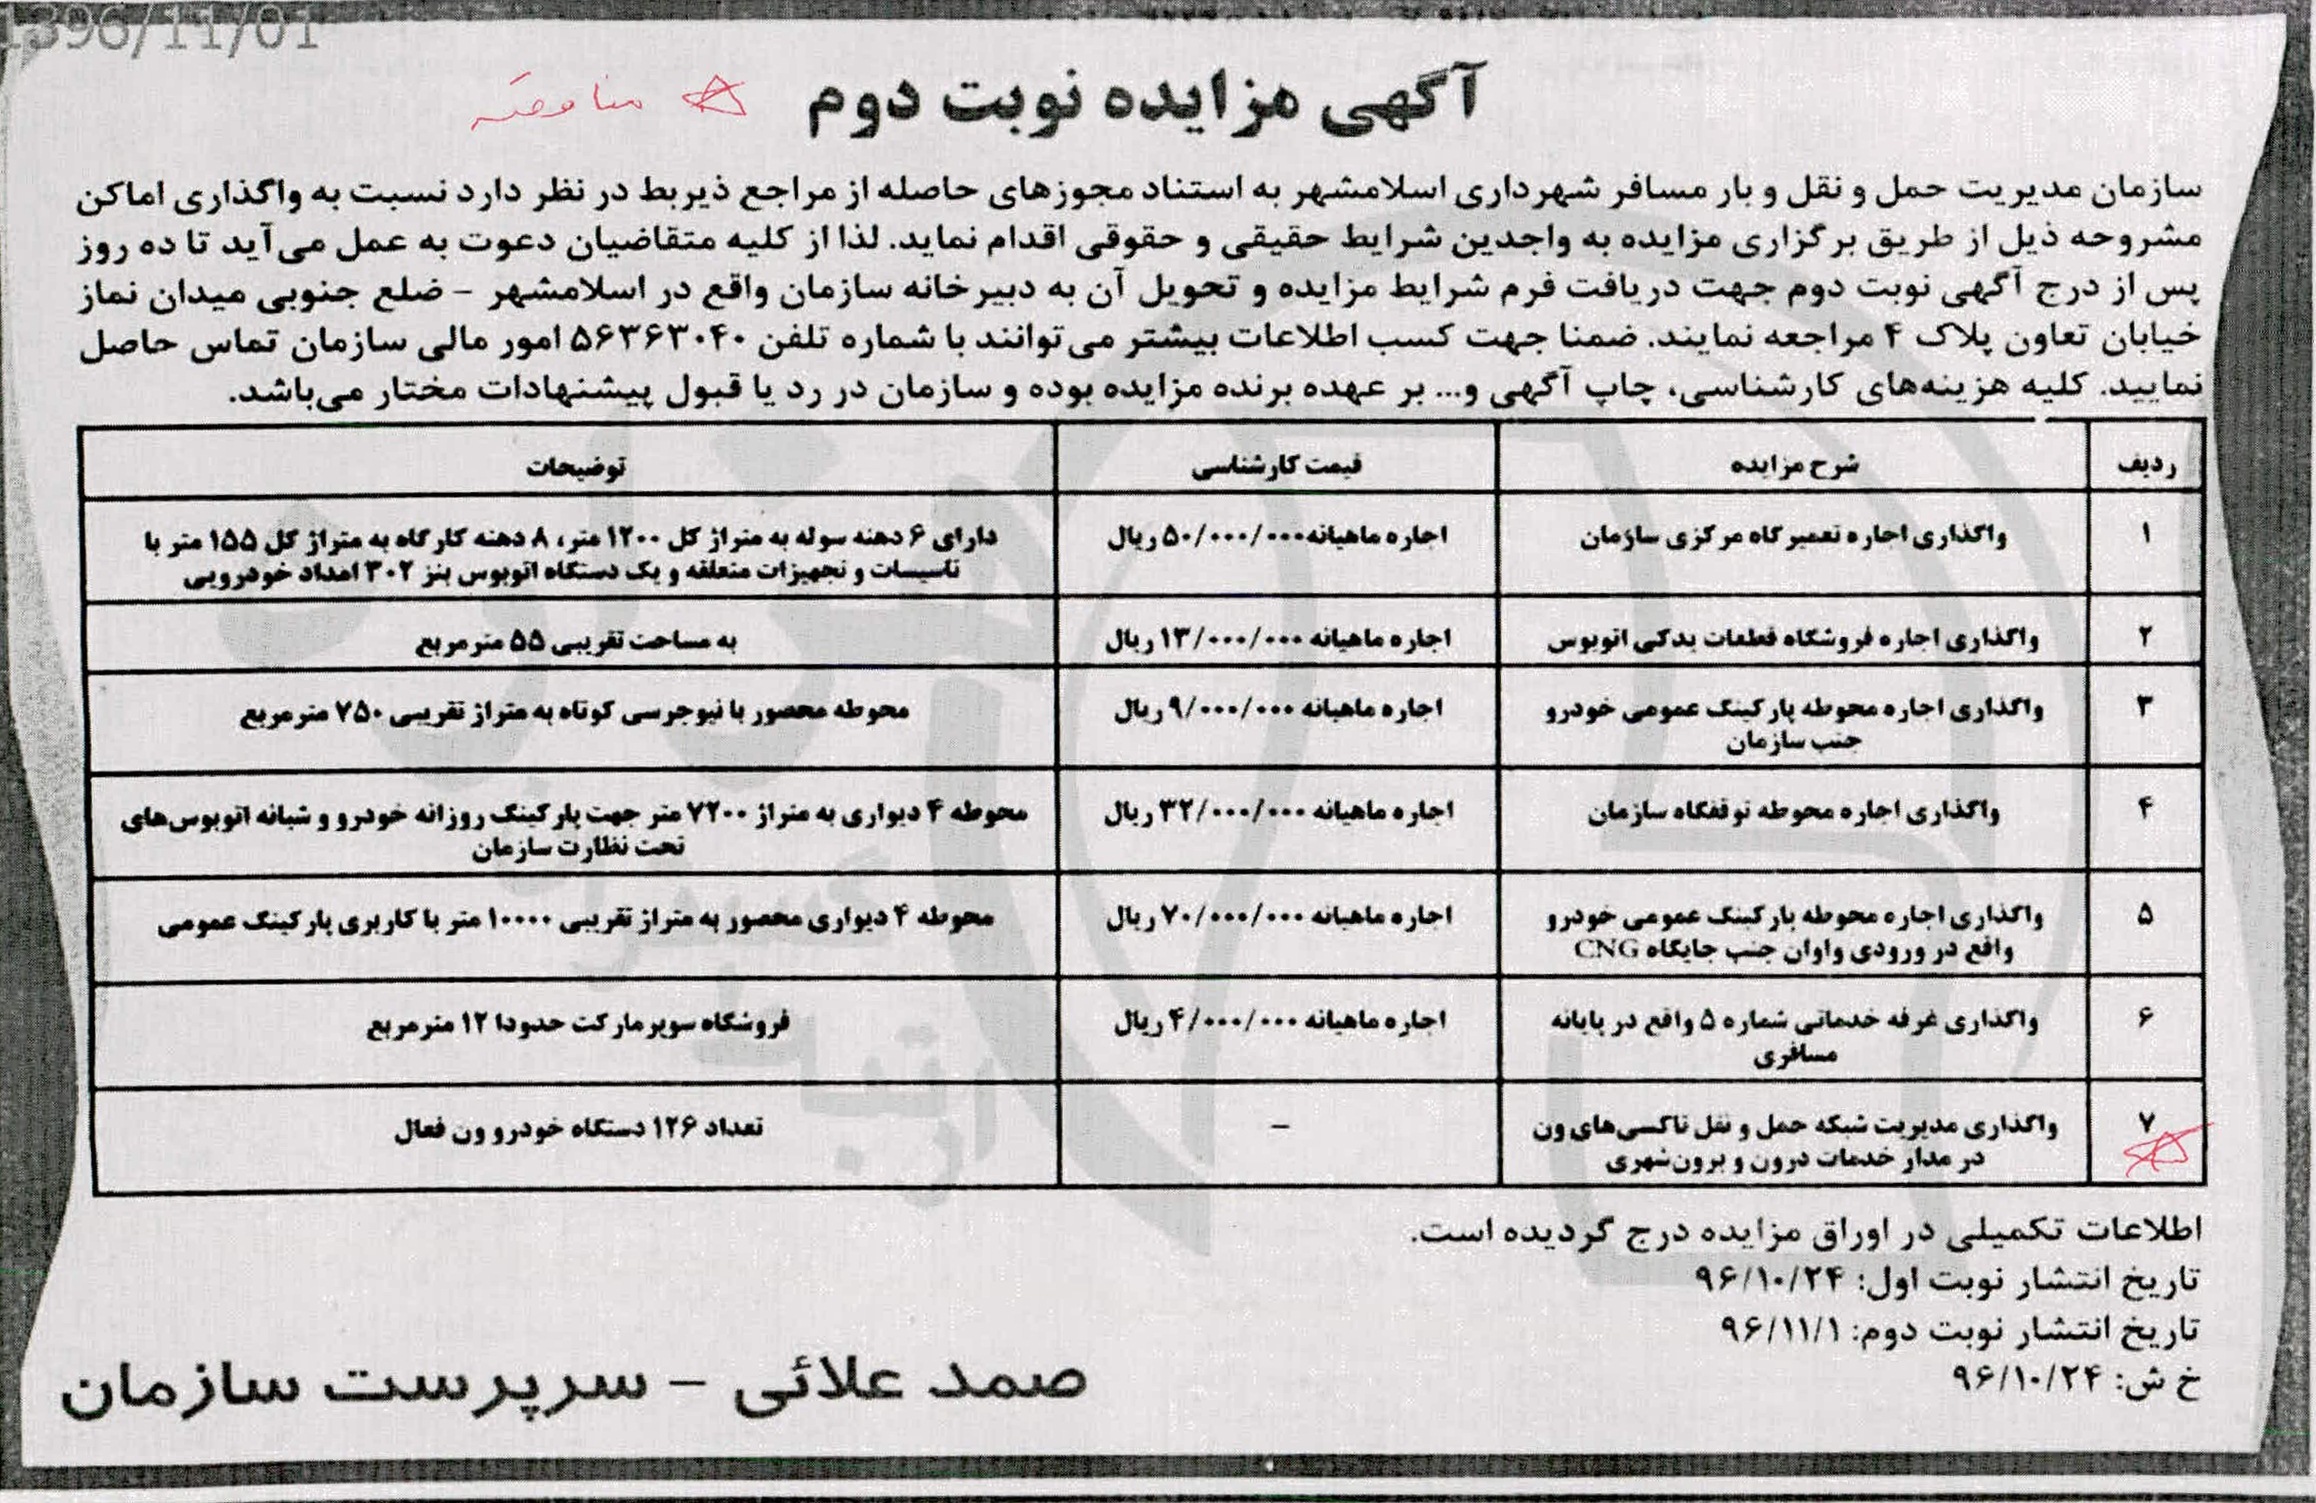 1396/11/01
آگهی مزایده نوبت دوم
مناقصه
سازمان مدیریت حمل و نقل و بار مسافر شهرداری اسلامشهر به استناد مجوزهای حاصله از مراجع ذیربط در نظر دارد نسبت به واگذاری اماکن
مشروحه ذیل از طریق برگزاری مزایده به واجدین شرایط حقیقی و حقوقی اقدام نماید. لذا از کلیه متقاضیان دعوت به عمل می‌آید تا ده روز
پس از درج آگهی نوبت دوم جهت دریافت فرم شرایط مزایده و تحویل آن به دبیرخانه سازمان واقع در اسلامشهر – ضلع جنوبی میدان نماز
خیابان تعاون پلاک ۴ مراجعه نمایند. ضمنا جهت کسب اطلاعات بیشتر می‌توانند با شماره تلفن ۵۶۳۶۳۰۴۰ امور مالی سازمان تماس حاصل
نمایید. کلیه هزینه‌های کارشناسی، چاپ آگهی و... بر عهده برنده مزایده بوده و سازمان در رد یا قبول پیشنهادات مختار می‌باشد.
ردیف شرح مزایده قیمت کارشناسی توضیحات
۱ واگذاری اجاره تعمیرگاه مرکزی سازمان اجاره ماهیانه ۵۰/۰۰۰/۰۰۰ ریال دارای ۶ دهنه سوله به متراژ کل ۱۲۰۰ متر، ۸ دهنه کارگاه به متراژ کل ۱۵۵ متر با
تاسیسات و تجهیزات متعلقه و یک دستگاه اتوبوس بنز ۳۰۲ امداد خودرویی
۲ واگذاری اجاره فروشگاه قطعات یدکی اتوبوس اجاره ماهیانه ۱۳/۰۰۰/۰۰۰ ریال به مساحت تقریبی ۵۵ مترمربع
۳ واگذاری اجاره محوطه پارکینگ عمومی خودرو اجاره ماهیانه ۹/۰۰۰/۰۰۰ ریال محوطه محصور با نیوجرسی کوتاه به متراژ تقریبی ۷۵۰ مترمربع
جنب سازمان
۴ واگذاری اجاره محوطه توقفگاه سازمان اجاره ماهیانه ۳۲/۰۰۰/۰۰۰ ریال محوطه ۴ دیواری به متراژ ۷۲۰۰ متر جهت پارکینگ روزانه خودرو و شبانه اتوبوس‌های
تحت نظارت سازمان
۵ واگذاری اجاره محوطه پارکینگ عمومی خودرو اجاره ماهیانه ۷۰/۰۰۰/۰۰۰ ریال محوطه ۴ دیواری محصور به متراژ تقریبی ۱۰۰۰۰ متر با کاربری پارکینگ عمومی
واقع در ورودی واوان جنب جایگاه CNG
۶ واگذاری غرفه خدماتی شماره ۵ واقع در پایانه اجاره ماهیانه ۴/۰۰۰/۰۰۰ ریال فروشگاه سوپرمارکت حدودا ۱۲ مترمربع
مسافری
۷ واگذاری مدیریت شبکه حمل و نقل تاکسی‌های ون – تعداد ۱۲۶ دستگاه خودرو ون فعال
در مدار خدمات درون و برون‌شهری
اطلاعات تکمیلی در اوراق مزایده درج گردیده است.
تاریخ انتشار نوبت اول: ۹۶/۱۰/۲۴
تاریخ انتشار نوبت دوم: ۹۶/۱۱/۱
خ ش: ۹۶/۱۰/۲۴
صمد علائی – سرپرست سازمان